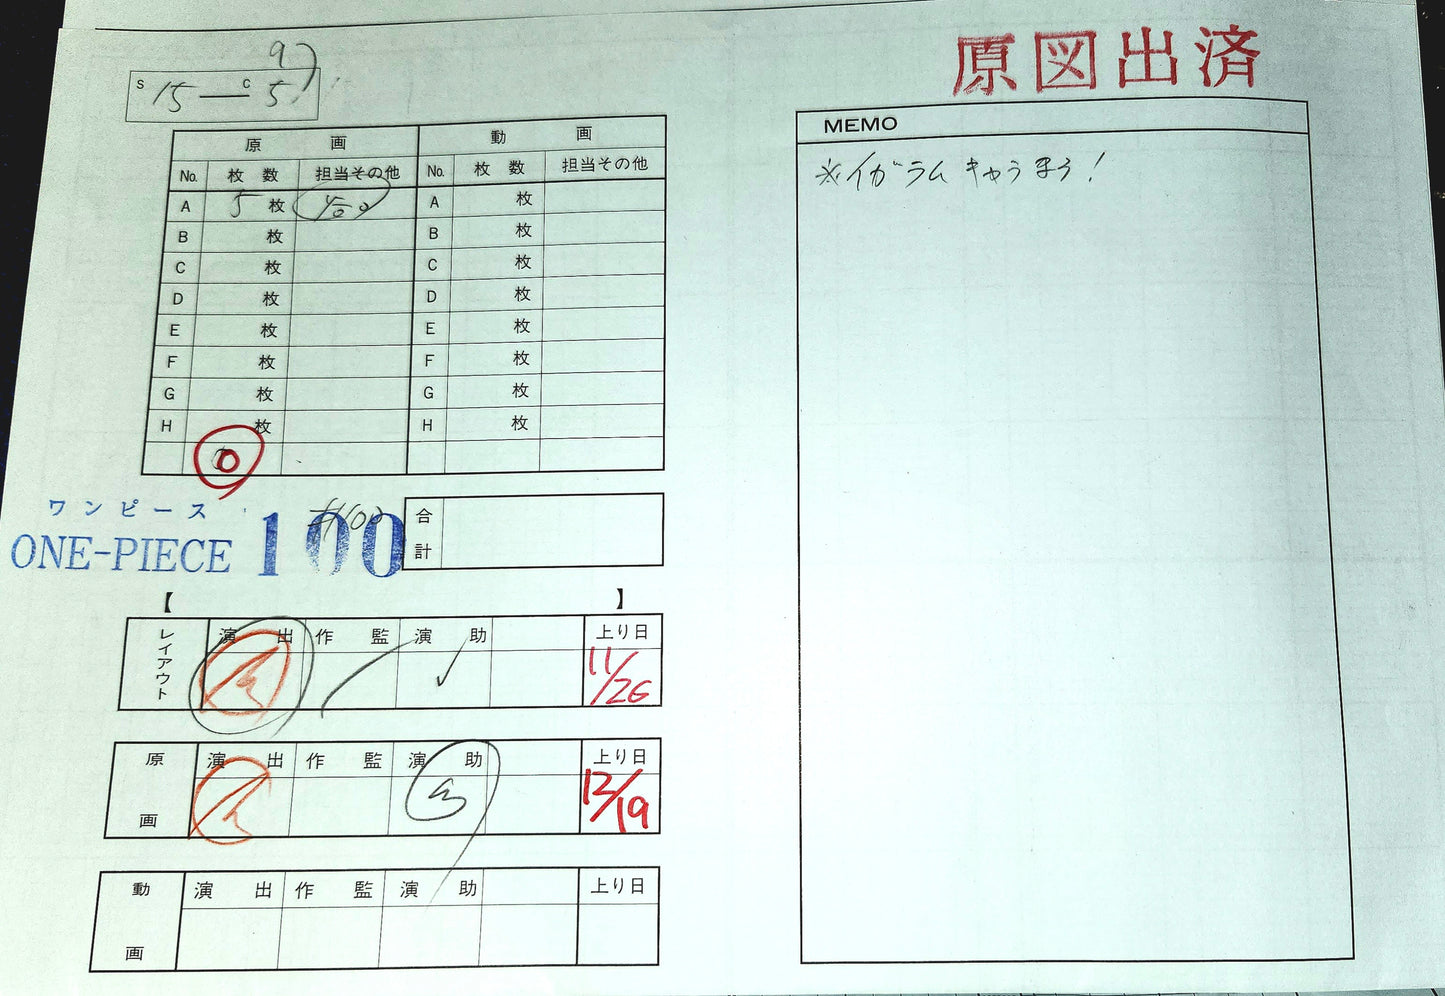 9
S 15 — C 5
原図出済
原 画 動 画
No. 枚 数 担当その他 No. 枚 数 担当その他
A 5 枚 A 枚
B 枚 B 枚
C 枚 C 枚
D 枚 D 枚
E 枚 E 枚
F 枚 F 枚
G 枚 G 枚
H 枚 H 枚
0
ワンピース
ONE-PIECE 100
#100
合計
【 】
レイアウト 演 出 作 監 演 助 上り日
11/26
原 画 演 出 作 監 演 助 上り日
12/19
動 画 演 出 作 監 演 助 上り日
MEMO
※イガラム きゃうまろ!